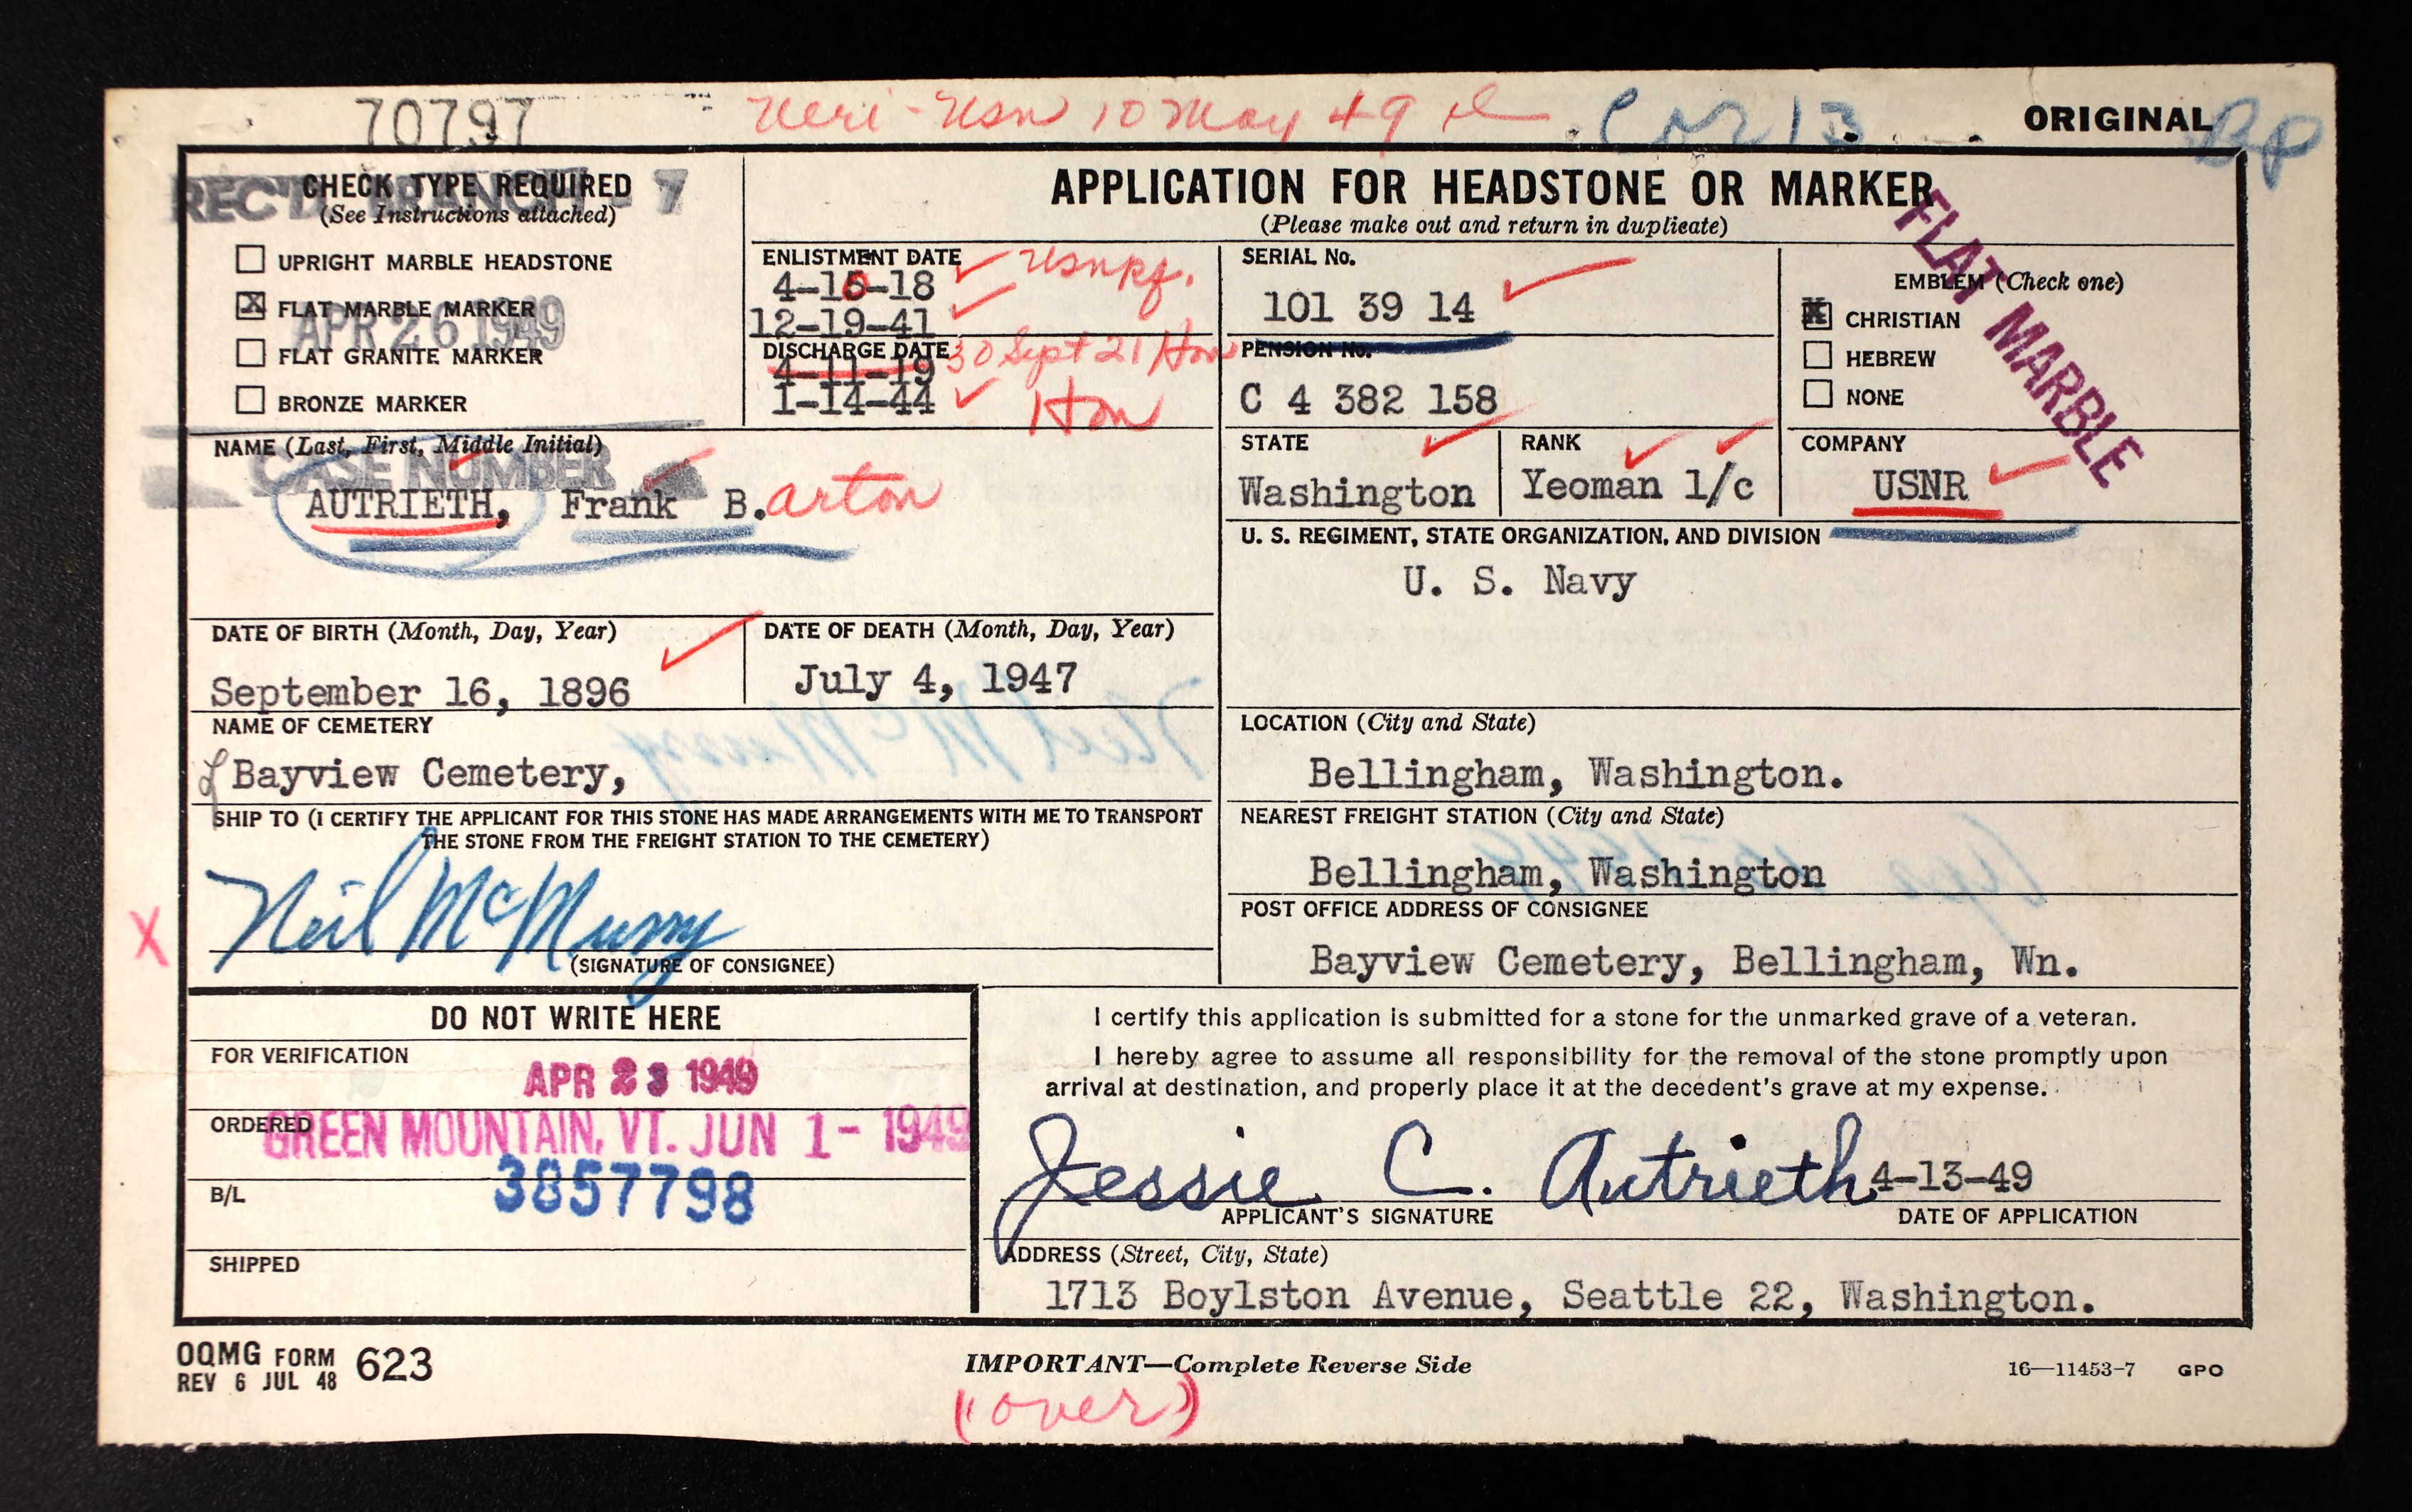 70797
Veri-Usn 10 May 49
ORIGINAL
Bp
CHECK TYPE REQUIRED
(See Instructions attached)
REC'D BRANCH 7
UPRIGHT MARBLE HEADSTONE
X FLAT MARBLE MARKER
APR 26 1949
FLAT GRANITE MARKER
BRONZE MARKER
APPLICATION FOR HEADSTONE OR MARKER
(Please make out and return in duplicate)
ENLISTMENT DATE
4-10-18 usnrf.
12-19-41
DISCHARGE DATE 30 Sept 21 Hon
4-11-19
1-14-44 Hon
SERIAL No.
101 39 14
PENSION No.
C 4 382 158
EMBLEM (Check one)
X CHRISTIAN
HEBREW
NONE
FLAT MARBLE
NAME (Last, First, Middle Initial)
CASE NUMBER
AUTRIETH, Frank B.arton
STATE
Washington
RANK
Yeoman 1/c
COMPANY
USNR
U. S. REGIMENT, STATE ORGANIZATION, AND DIVISION
U. S. Navy
DATE OF BIRTH (Month, Day, Year)
September 16, 1896
DATE OF DEATH (Month, Day, Year)
July 4, 1947
NAME OF CEMETERY
Bayview Cemetery,
LOCATION (City and State)
Bellingham, Washington.
SHIP TO (I CERTIFY THE APPLICANT FOR THIS STONE HAS MADE ARRANGEMENTS WITH ME TO TRANSPORT
THE STONE FROM THE FREIGHT STATION TO THE CEMETERY)
X Neil McMurry
(SIGNATURE OF CONSIGNEE)
NEAREST FREIGHT STATION (City and State)
Bellingham, Washington
POST OFFICE ADDRESS OF CONSIGNEE
Bayview Cemetery, Bellingham, Wn.
DO NOT WRITE HERE
FOR VERIFICATION
APR 23 1949
ORDERED
GREEN MOUNTAIN, VT. JUN 1 - 1949
B/L
3857798
SHIPPED
I certify this application is submitted for a stone for the unmarked grave of a veteran.
I hereby agree to assume all responsibility for the removal of the stone promptly upon
arrival at destination, and properly place it at the decedent's grave at my expense.
Jessie C. Autrieth 4-13-49
APPLICANT'S SIGNATURE DATE OF APPLICATION
ADDRESS (Street, City, State)
1713 Boylston Avenue, Seattle 22, Washington.
OQMG FORM 623
REV 6 JUL 48
IMPORTANT—Complete Reverse Side
16—11453-7 GPO
(over)